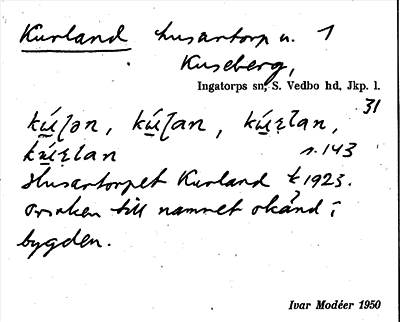 Kurland husartorp u. 1
Kuseberg,
Ingatorps sn, S. Vedbo hd, Jkp. l.
31
s. 143
Husartorpet Kurland t 1923.
Orsaken till namnet okänd i
bygden.
Ivar Modéer 1950